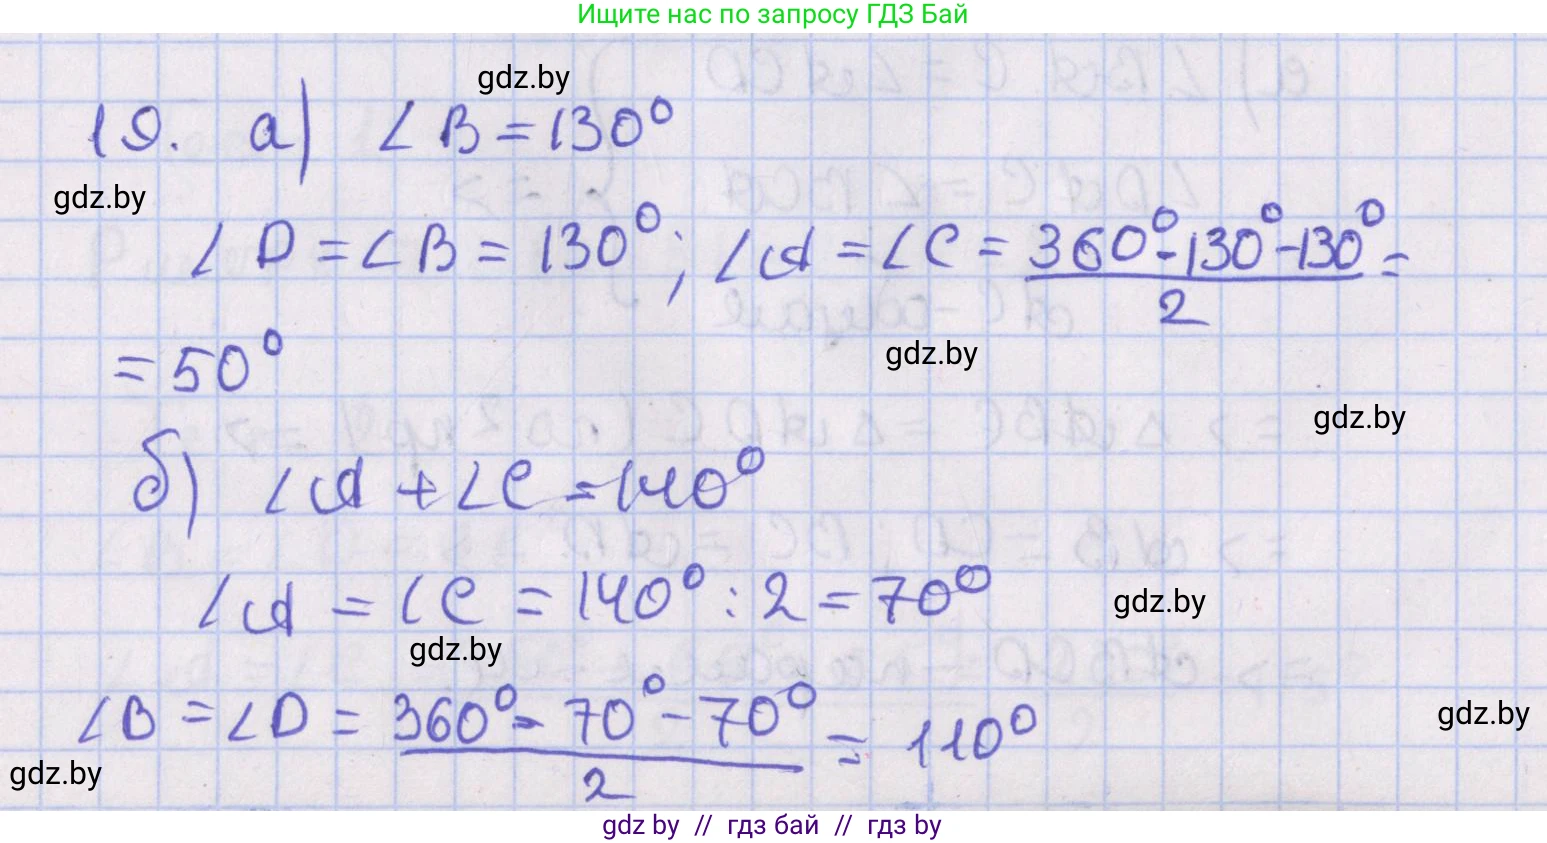 Ищите нас по запросу ГДЗ Бай
gdz.by
19. а) ∠B = 130°
gdz.by
∠D = ∠B = 130°; ∠A = ∠C = (360° - 130° - 130°)/2 =
= 50°
gdz.by
gdz.by
б) ∠A + ∠C = 140°
∠A = ∠C = 140° : 2 = 70°
gdz.by
gdz.by
∠B = ∠D = (360° - 70° - 70°)/2 = 110°
gdz.by
gdz.by
gdz by // гдз бай // гдз by